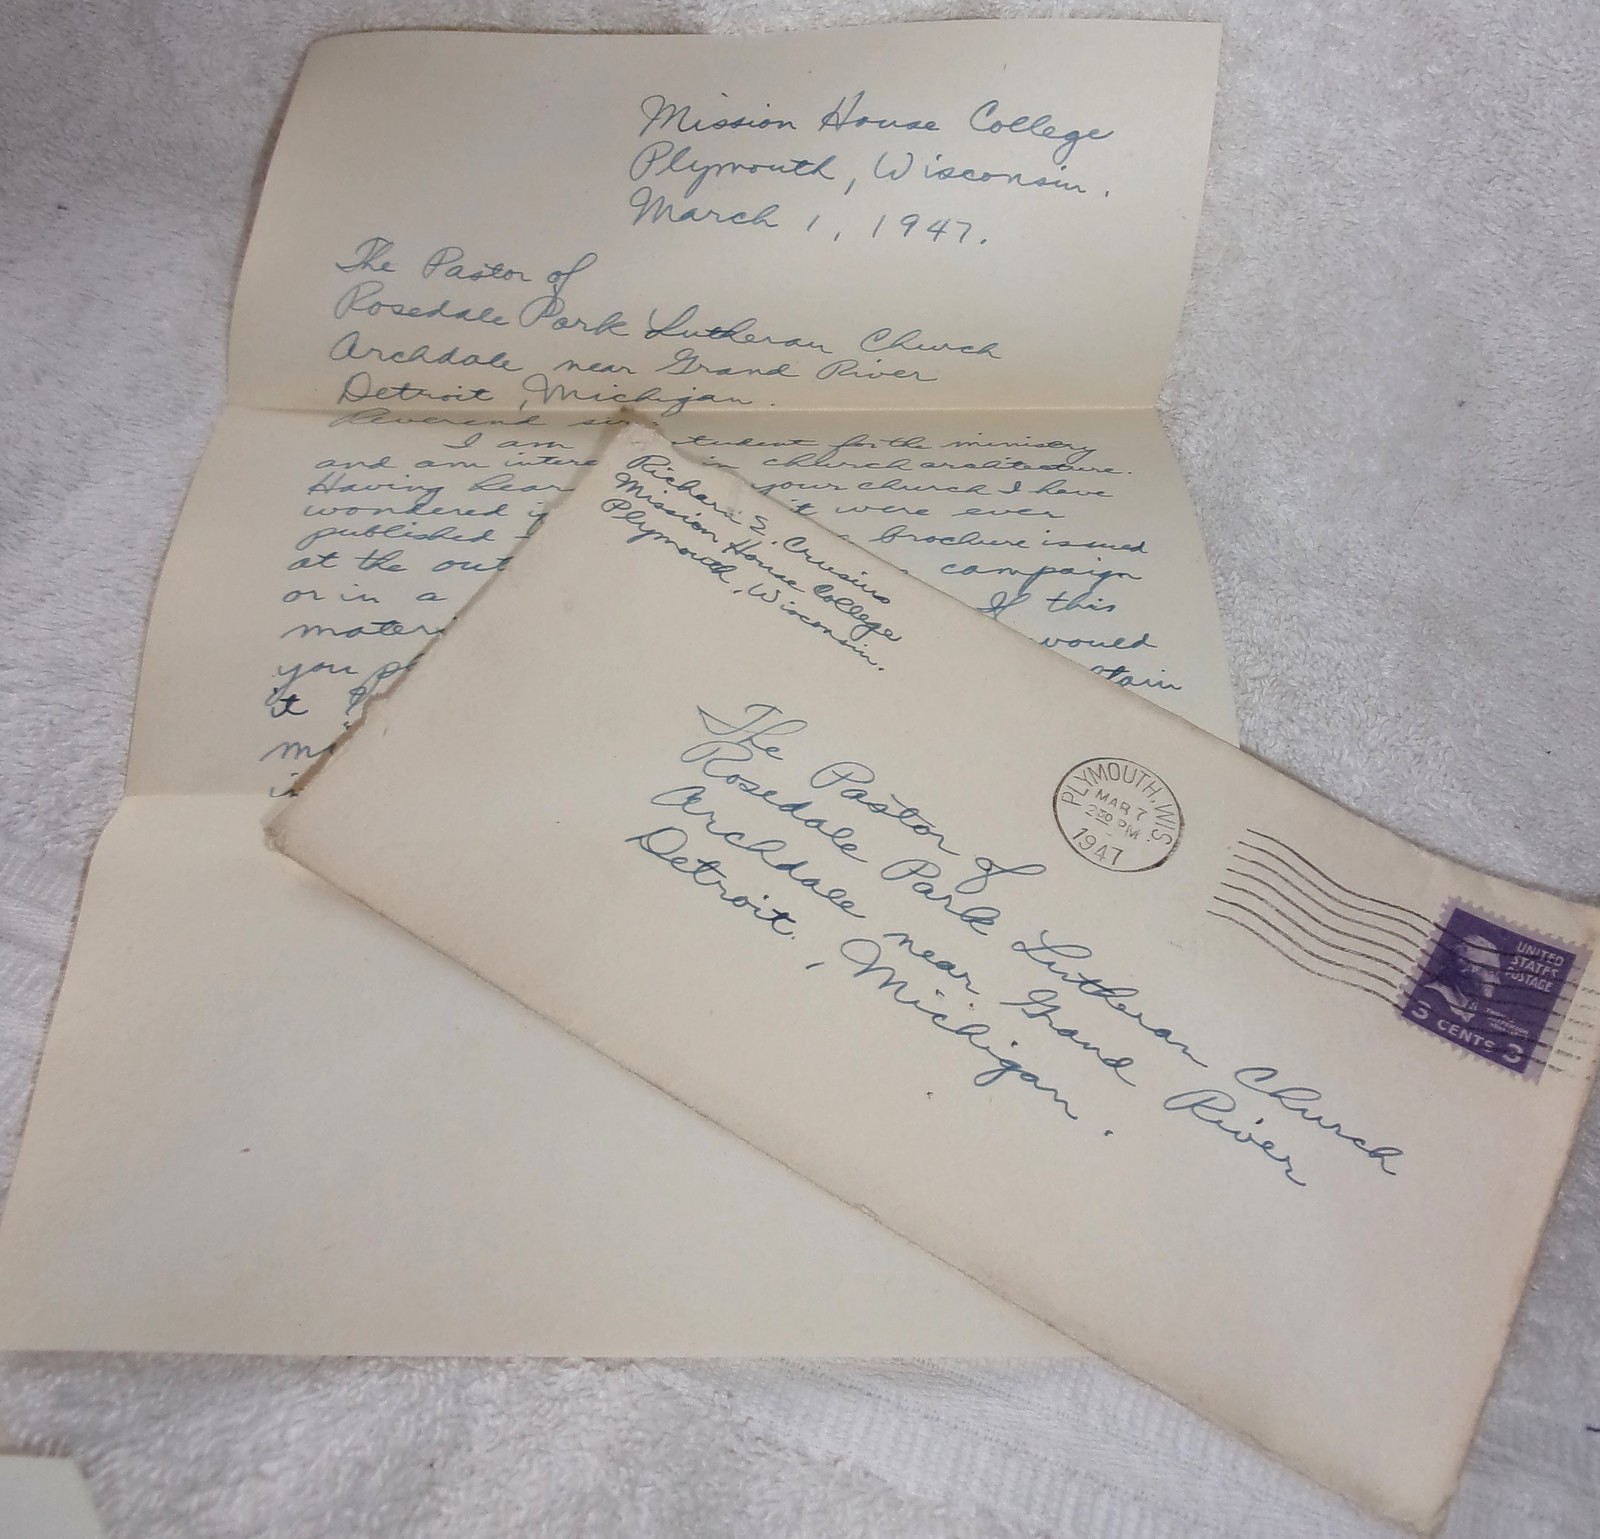 Mission House College
Plymouth, Wisconsin.
March 1, 1947.
The Pastor of
Rosedale Park Lutheran Church
Archdale near Grand River
Detroit, Michigan.
Reverend sir:
I am student for the ministry
and am in church architecture.
Having your church I have
wondered it were ever
published brochure issued
at the campaign
or in a If this
would
you
it
Richard S. Crusius
Mission House College
Plymouth, Wisconsin.
The Pastor of
Rosedale Park Lutheran Church
Archdale near Grand River
Detroit, Michigan.
PLYMOUTH, WIS.
MAR 7
2 30 PM
1947
UNITED
STATES
POSTAGE
THOMAS
JEFFERSON
3 CENTS 3